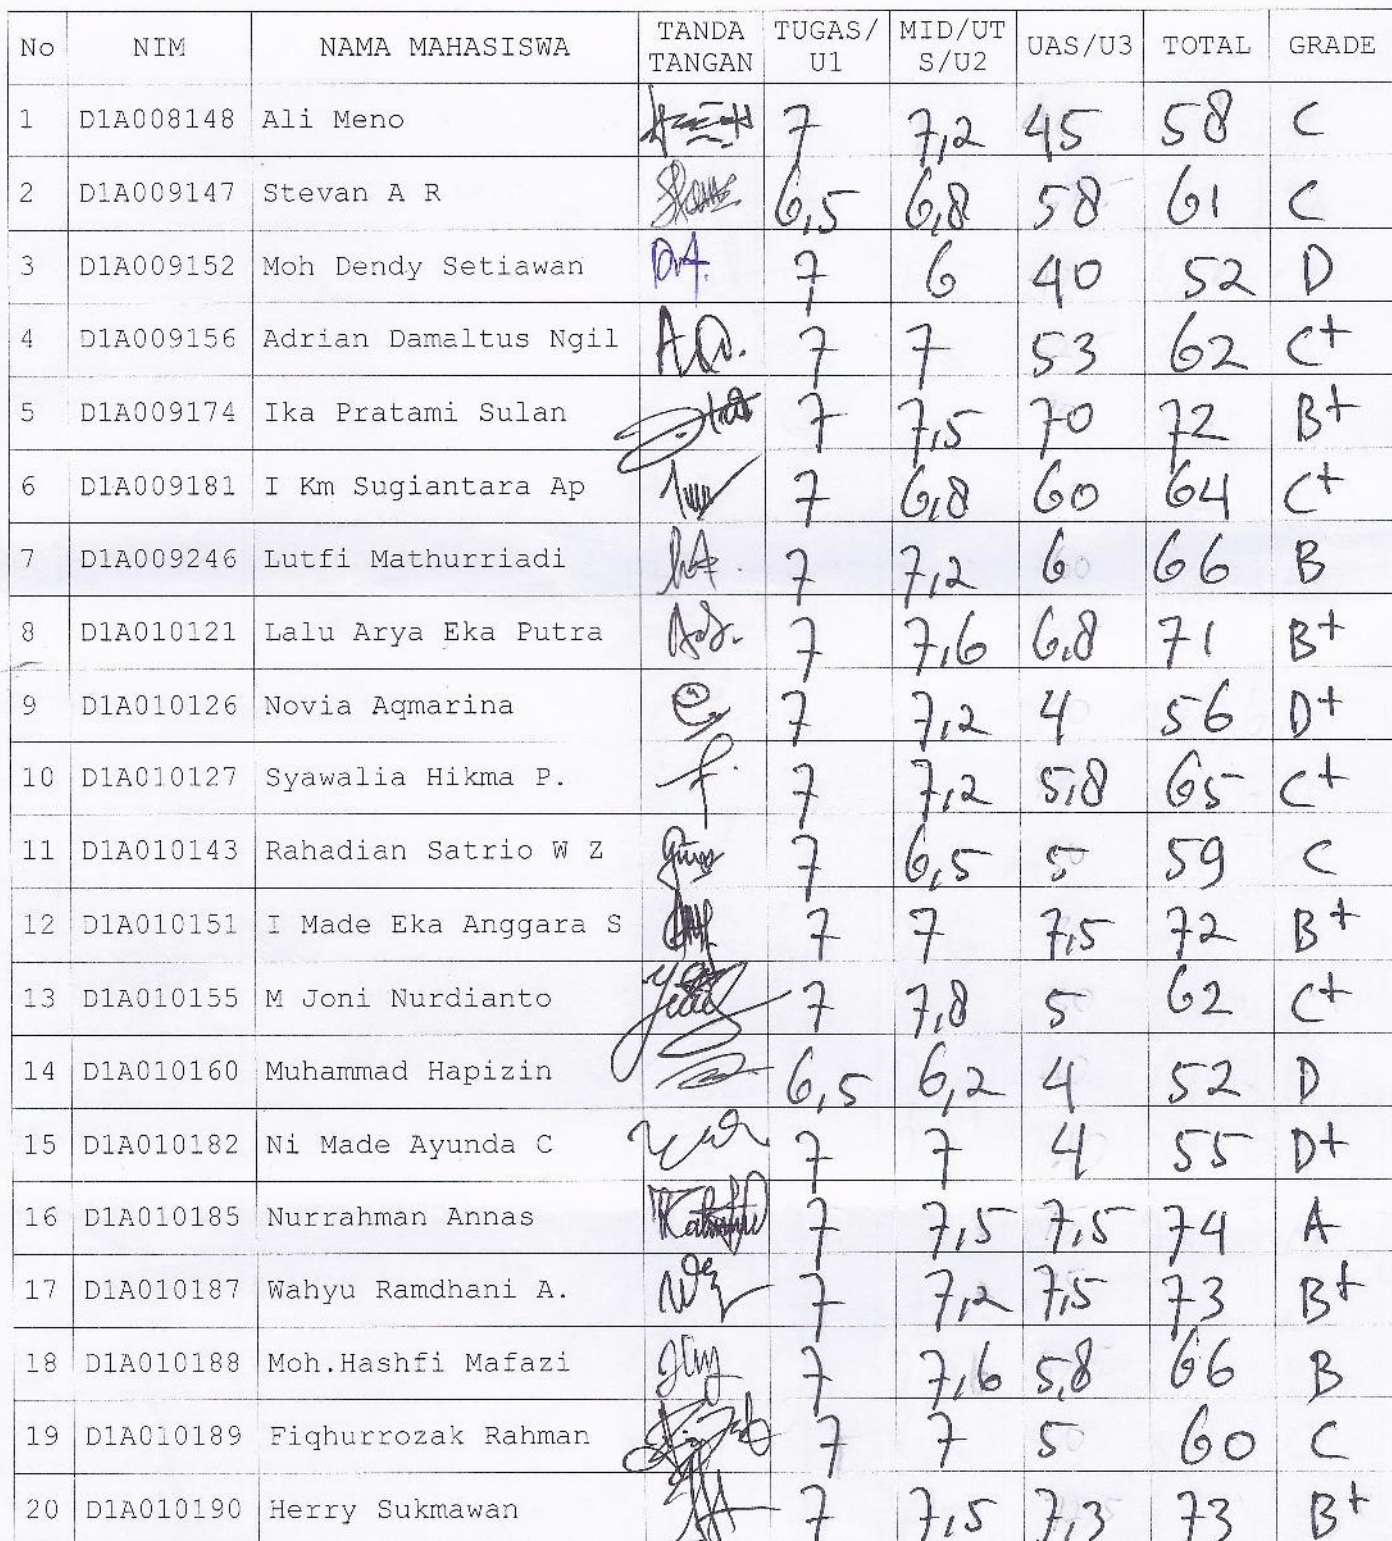 No NIM NAMA MAHASISWA TANDA TANGAN TUGAS/U1 MID/UTS/U2 UAS/U3 TOTAL GRADE
1 D1A008148 Ali Meno 7 7,2 45 58 C
2 D1A009147 Stevan A R 6,5 6,8 58 61 C
3 D1A009152 Moh Dendy Setiawan 7 6 40 52 D
4 D1A009156 Adrian Damaltus Ngil 7 7 53 62 C+
5 D1A009174 Ika Pratami Sulan 7 7,5 70 72 B+
6 D1A009181 I Km Sugiantara Ap 7 6,8 60 64 C+
7 D1A009246 Lutfi Mathurriadi 7 7,2 6 66 B
8 D1A010121 Lalu Arya Eka Putra 7 7,6 6,8 71 B+
9 D1A010126 Novia Aqmarina 7 7,2 4 56 D+
10 D1A010127 Syawalia Hikma P. 7 7,2 5,8 65 C+
11 D1A010143 Rahadian Satrio W Z 7 6,5 5 59 C
12 D1A010151 I Made Eka Anggara S 7 7 7,5 72 B+
13 D1A010155 M Joni Nurdianto 7 7,8 5 62 C+
14 D1A010160 Muhammad Hapizin 6,5 6,2 4 52 D
15 D1A010182 Ni Made Ayunda C 7 7 4 55 D+
16 D1A010185 Nurrahman Annas 7 7,5 7,5 74 A
17 D1A010187 Wahyu Ramdhani A. 7 7,2 7,5 73 B+
18 D1A010188 Moh.Hashfi Mafazi 7 7,6 5,8 66 B
19 D1A010189 Fiqhurrozak Rahman 7 7 5 60 C
20 D1A010190 Herry Sukmawan 7 7,5 7,3 73 B+